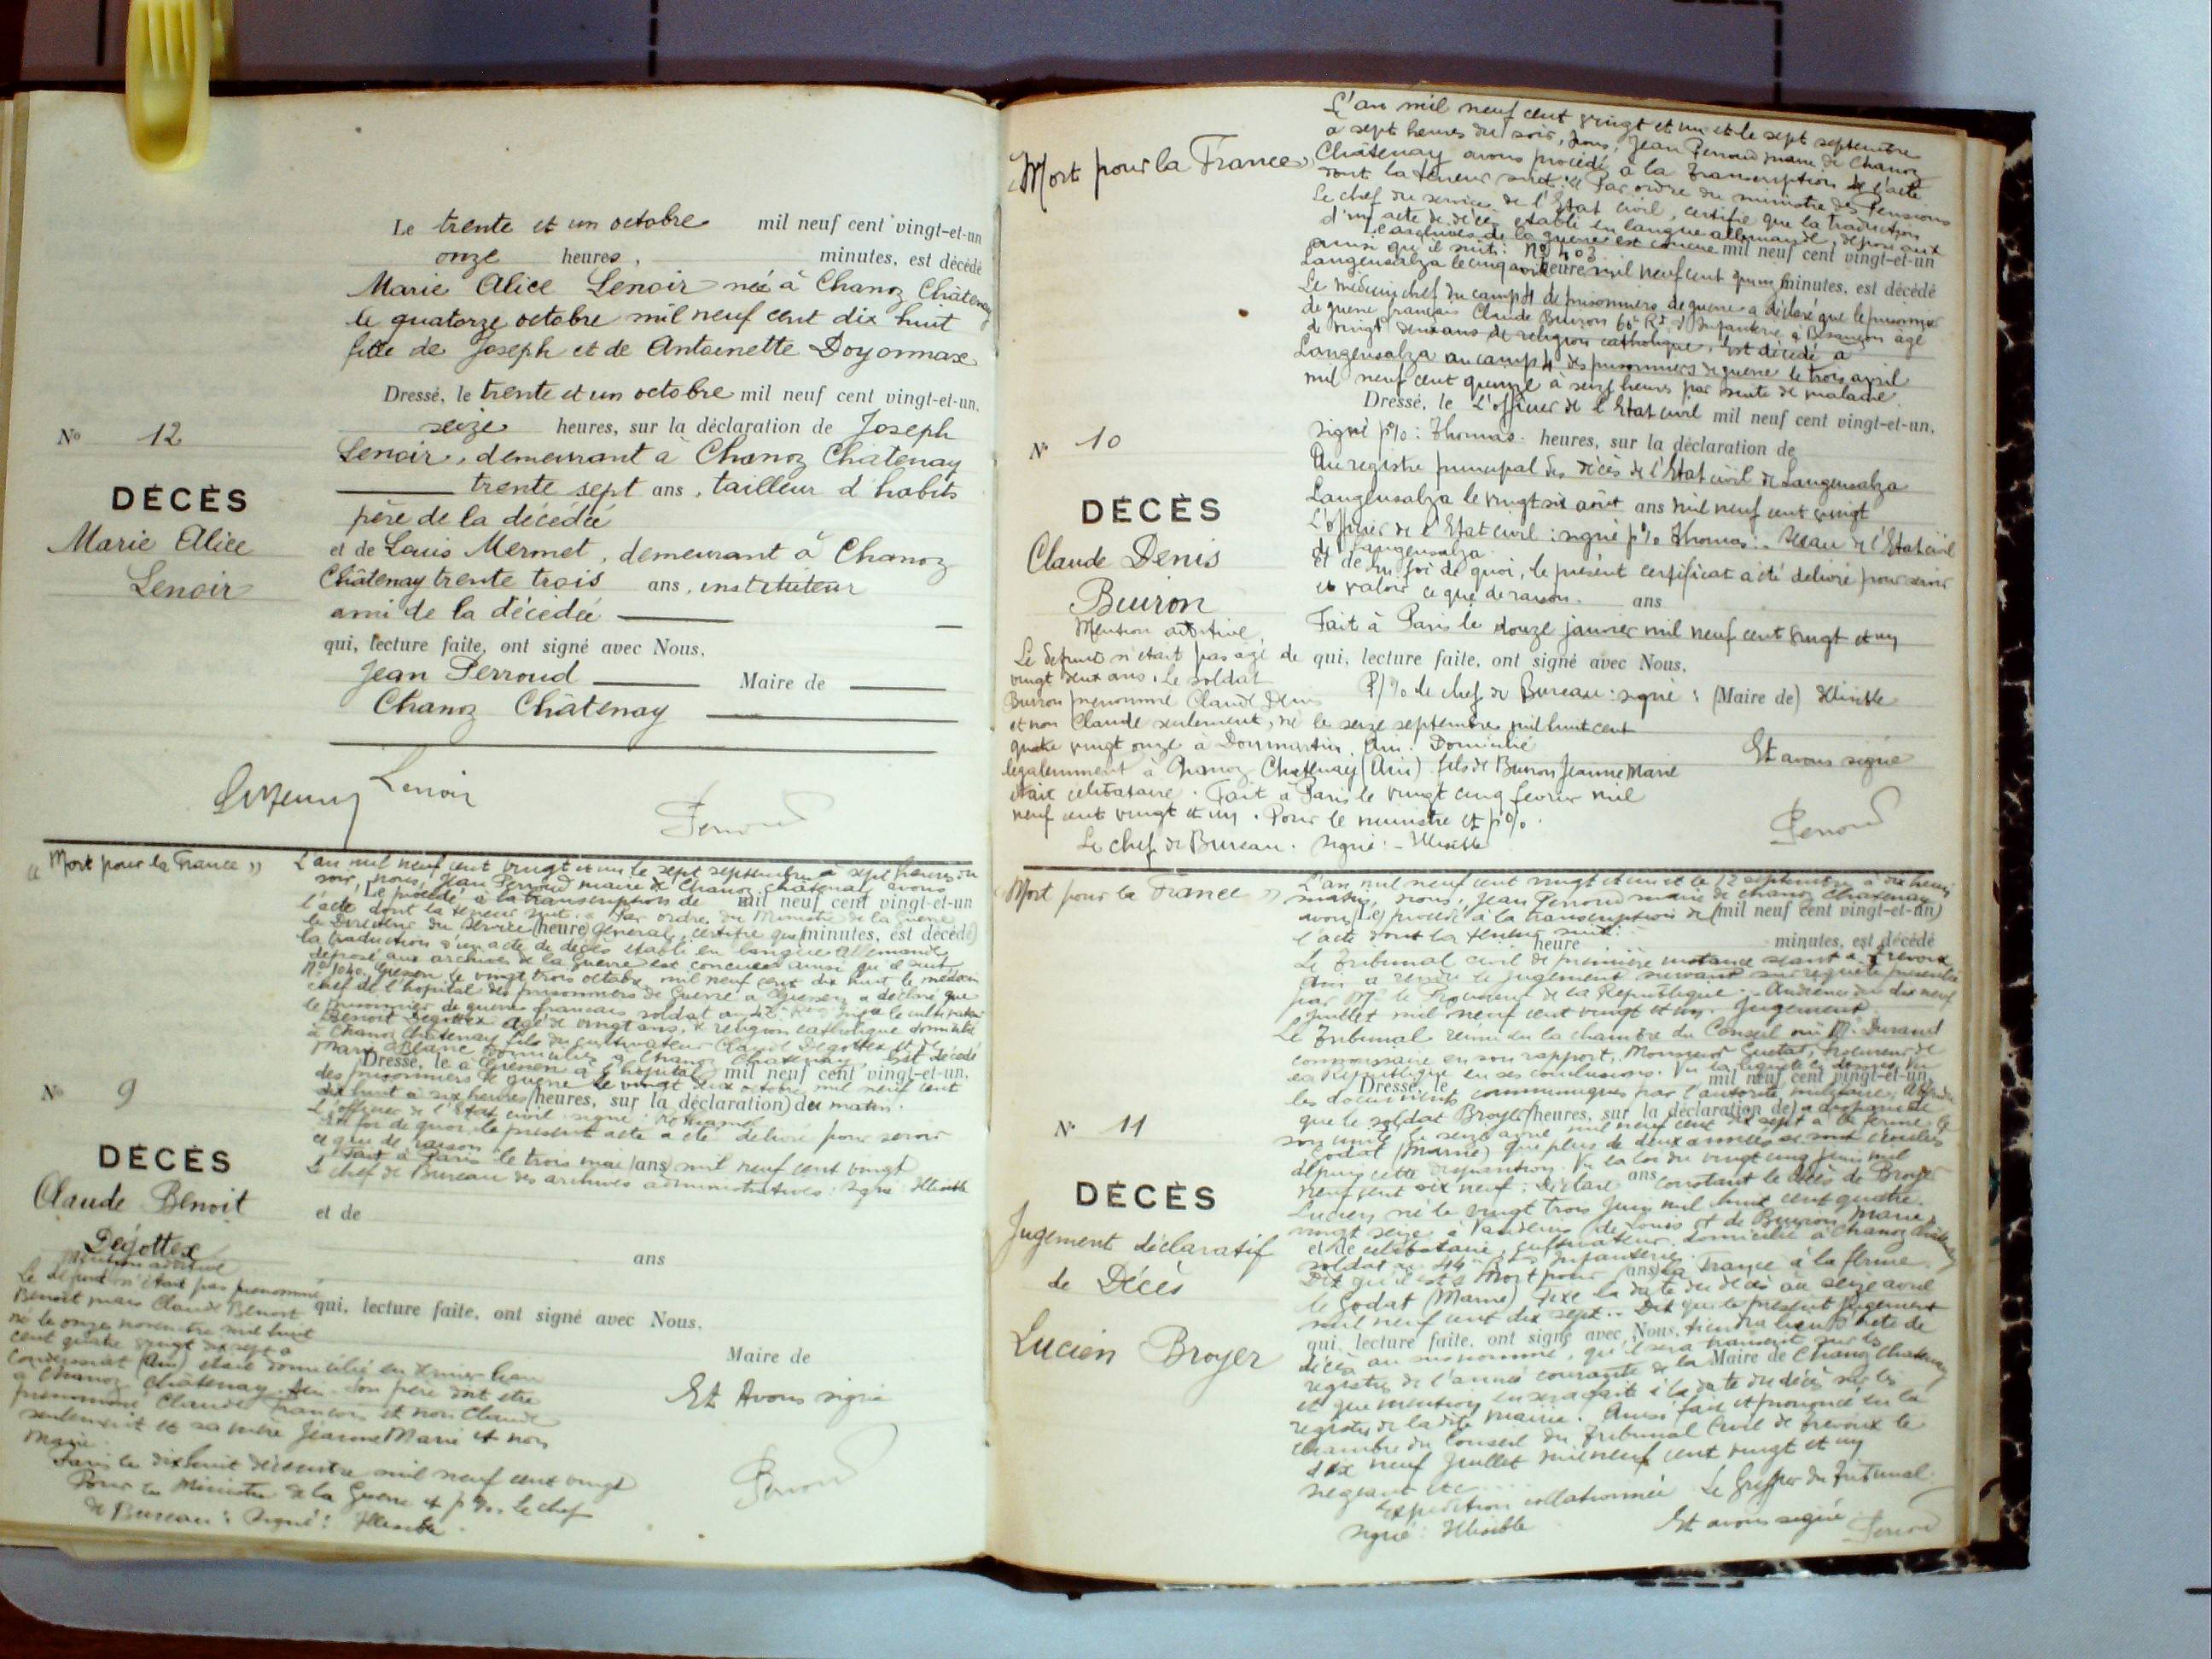 Le trente et un octobre mil neuf cent vingt-et-un
onze heures, minutes, est décédé
Marie Alice Lenoir née à Chanoz Châtenay
le quatorze octobre mil neuf cent dix huit
fille de Joseph et de Antoinette Doyonnax
Dressé, le trente et un octobre mil neuf cent vingt-et-un,
seize heures, sur la déclaration de Joseph
Lenoir, demeurant à Chanoz Châtenay
trente sept ans, tailleur d'habits
père de la décédée
et de Louis Mermet, demeurant à Chanoz
Châtenay trente trois ans, instituteur
ami de la décédée
qui, lecture faite, ont signé avec Nous,
Jean Perroud Maire de
Chanoz Châtenay
No 12
DÉCÈS
Marie Alice
Lenoir
Lenoir
Perroud
"Mort pour la France"
No 9
DÉCÈS
Claude Benoit
Dégottex
Mention additive
Le défunt n'était pas prénommé
Benoit mais Claude Benoit
né le onze novembre mil huit
cent quatre vingt dix sept à
Condeissiat (Ain) était domicilié en dernier lieu
à Chanoz Châtenay Ain. Son père doit être
prénommé Claude François et non Claude
seulement et sa mère Jeanne Marie et non
Marie.
Paris le dix huit décembre mil neuf cent vingt
Pour le Ministre de la Guerre et p%. le chef
de Bureau : Signé : Illisible.
L'an mil neuf cent vingt et un le sept septembre à sept heures du
soir, nous, Jean Perroud maire de Chanoz Châtenay avons
Le procédé à la transcription de mil neuf cent vingt-et-un
l'acte dont la teneur suit. « Par ordre du Ministre de la Guerre
le Directeur du Service (heure) général, certifie que (minutes, est décédé)
la traduction d'un acte de décès établi en langue allemande
déposé aux archives de la Guerre est conçue ainsi qu'il suit
No 1040. le vingt trois octobre mil neuf cent dix huit le médecin
chef de l'hôpital des prisonniers de Guerre à a déclaré que
le prisonnier de guerre français soldat au le cultivateur
Benoit Dégottex âgé de vingt ans, de religion catholique domicilié
à Chanoz Châtenay fils du cultivateur Claude Dégottex et de
Marie Blanc domiciliés à Chanoz Châtenay Est décédé
Dressé, le à à l'hôpital mil neuf cent vingt-et-un,
des prisonniers de guerre le vingt deux octobre mil neuf cent
dix huit à six heures (heures, sur la déclaration) du matin.
L'officier de l'Etat civil signé :
En foi de quoi, le présent acte a été délivré pour servir
ce que de raison
Fait à Paris le trois mai (ans) mil neuf cent vingt
Le chef de Bureau des archives administratives : signé : Illisible
et de
ans
qui, lecture faite, ont signé avec Nous.
Maire de
Et Avons signé
Perroud
"Mort pour la France"
No 10
DÉCÈS
Claude Denis
Buiron
Mention additive
L'an mil neuf cent vingt et un et le sept septembre
à sept heures du soir, nous, Jean Perroud maire de Chanoz
Châtenay avons procédé à la transcription de l'acte
dont la teneur suit : « Par ordre du ministre des Pensions
Le chef du service de l'Etat civil, certifie que la traduction
d'un acte de décès établi en langue allemande, déposé aux
Le archives de la guerre est conçue mil neuf cent vingt-et-un
ainsi qu'il suit : No 403
Langensalza le cinq avril heure mil neuf cent quinze minutes, est décédé
Le médecin chef du camp de prisonniers de guerre a déclaré que le prisonnier
de guerre français Claude Buiron 60e Rt d'Infanterie, à Besançon âgé
de vingt deux ans de religion catholique, est décédé à
Langensalza au camp des prisonniers de guerre le trois avril
mil neuf cent quinze à seize heures par suite de maladie.
Dressé, le L'officier de l'Etat civil mil neuf cent vingt-et-un,
signé p%: Thomas. heures, sur la déclaration de
Au registre principal des décès de l'Etat civil de Langensalza
Langensalza le vingt six août ans mil neuf cent vingt
L'officier de l'Etat civil : signé p% Thomas. Sceau de l'Etat civil
de Langensalza
et de En foi de quoi, le présent certificat a été délivré pour servir
et valoir ce que de raison. ans
Fait à Paris le douze janvier mil neuf cent vingt et un
Le défunt n'était pas âgé de qui, lecture faite, ont signé avec Nous,
vingt deux ans. Le soldat
P/% le chef de Bureau : signé : (Maire de) Illisible
Buiron prénommé Claude Denis
et non Claude seulement, né le seize septembre mil huit cent
quatre vingt onze à Dommartin. Ain. Domicilié
légalement à Chanoz Châtenay (Ain) fils de Buiron Jeanne Marie
était célibataire. Fait à Paris le vingt cinq février mil
neuf cent vingt et un. Pour le ministre et p%.
Le chef de Bureau. Signé : Illisible
Et avons signé
Perroud
"Mort pour la France"
No 11
DÉCÈS
Jugement déclaratif
de Décès
Lucien Broyer
L'an mil neuf cent vingt et un et le 12 septembre à dix heures
matin, nous, Jean Perroud maire de Chanoz Châtenay
avons (Le) procédé à la transcription de (mil neuf cent vingt-et-un)
l'acte dont la teneur suit :
heure minutes, est décédé
Le Tribunal civil de première instance séant à Trévoux
Ain a rendu le jugement suivant sur requête présentée
par Mr le Procureur de la République. Audience du dix neuf
juillet mil neuf cent vingt et un. Jugement.
Le Tribunal réuni en la chambre du Conseil ouï Mr Durand
commissaire en son rapport, Monsieur Guetat, Procureur de
la République en ses conclusions. Vu la requête
Dressé, le mil neuf cent vingt-et-un,
les documents communiqués par l'autorité militaire, Attendu
que le soldat Broyer (heures, sur la déclaration de) a disparu de
son unité le seize avril mil neuf cent dix sept à la ferme le
Godat (Marne) que plus de deux années se sont écoulées
depuis cette disparition. Vu la loi du vingt cinq juin mil
neuf cent dix neuf : Déclare ans constant le décès de Broyer
Lucien né le vingt trois juin mil huit cent quatre
vingt seize à Vandeins de Louis et de Buiron Marie,
et de célibataire, cultivateur. domicilié à Chanoz Châtenay
soldat au 44e Infanterie.
Dit qu'il est « Mort pour (ans) la France à la ferme
le Godat (Marne) Fixe la date du décès au seize avril
mil neuf cent dix sept. Dit que le présent jugement
qui, lecture faite, ont signé avec Nous, tiendra lieu d'acte de
décès au susnommé, qu'il sera transcrit sur les
registres de l'année courante de la Maire de Chanoz Châtenay
et que mention en sera faite à la date du décès sur les
registres de la dite mairie. Ainsi fait et prononcé en la
chambre du Conseil du Tribunal Civil de Trévoux le
dix neuf juillet mil neuf cent vingt et un
siégeant etc....
Expédition collationnée Le Greffier du Tribunal.
signé : Illisible Et avons signé
Perroud